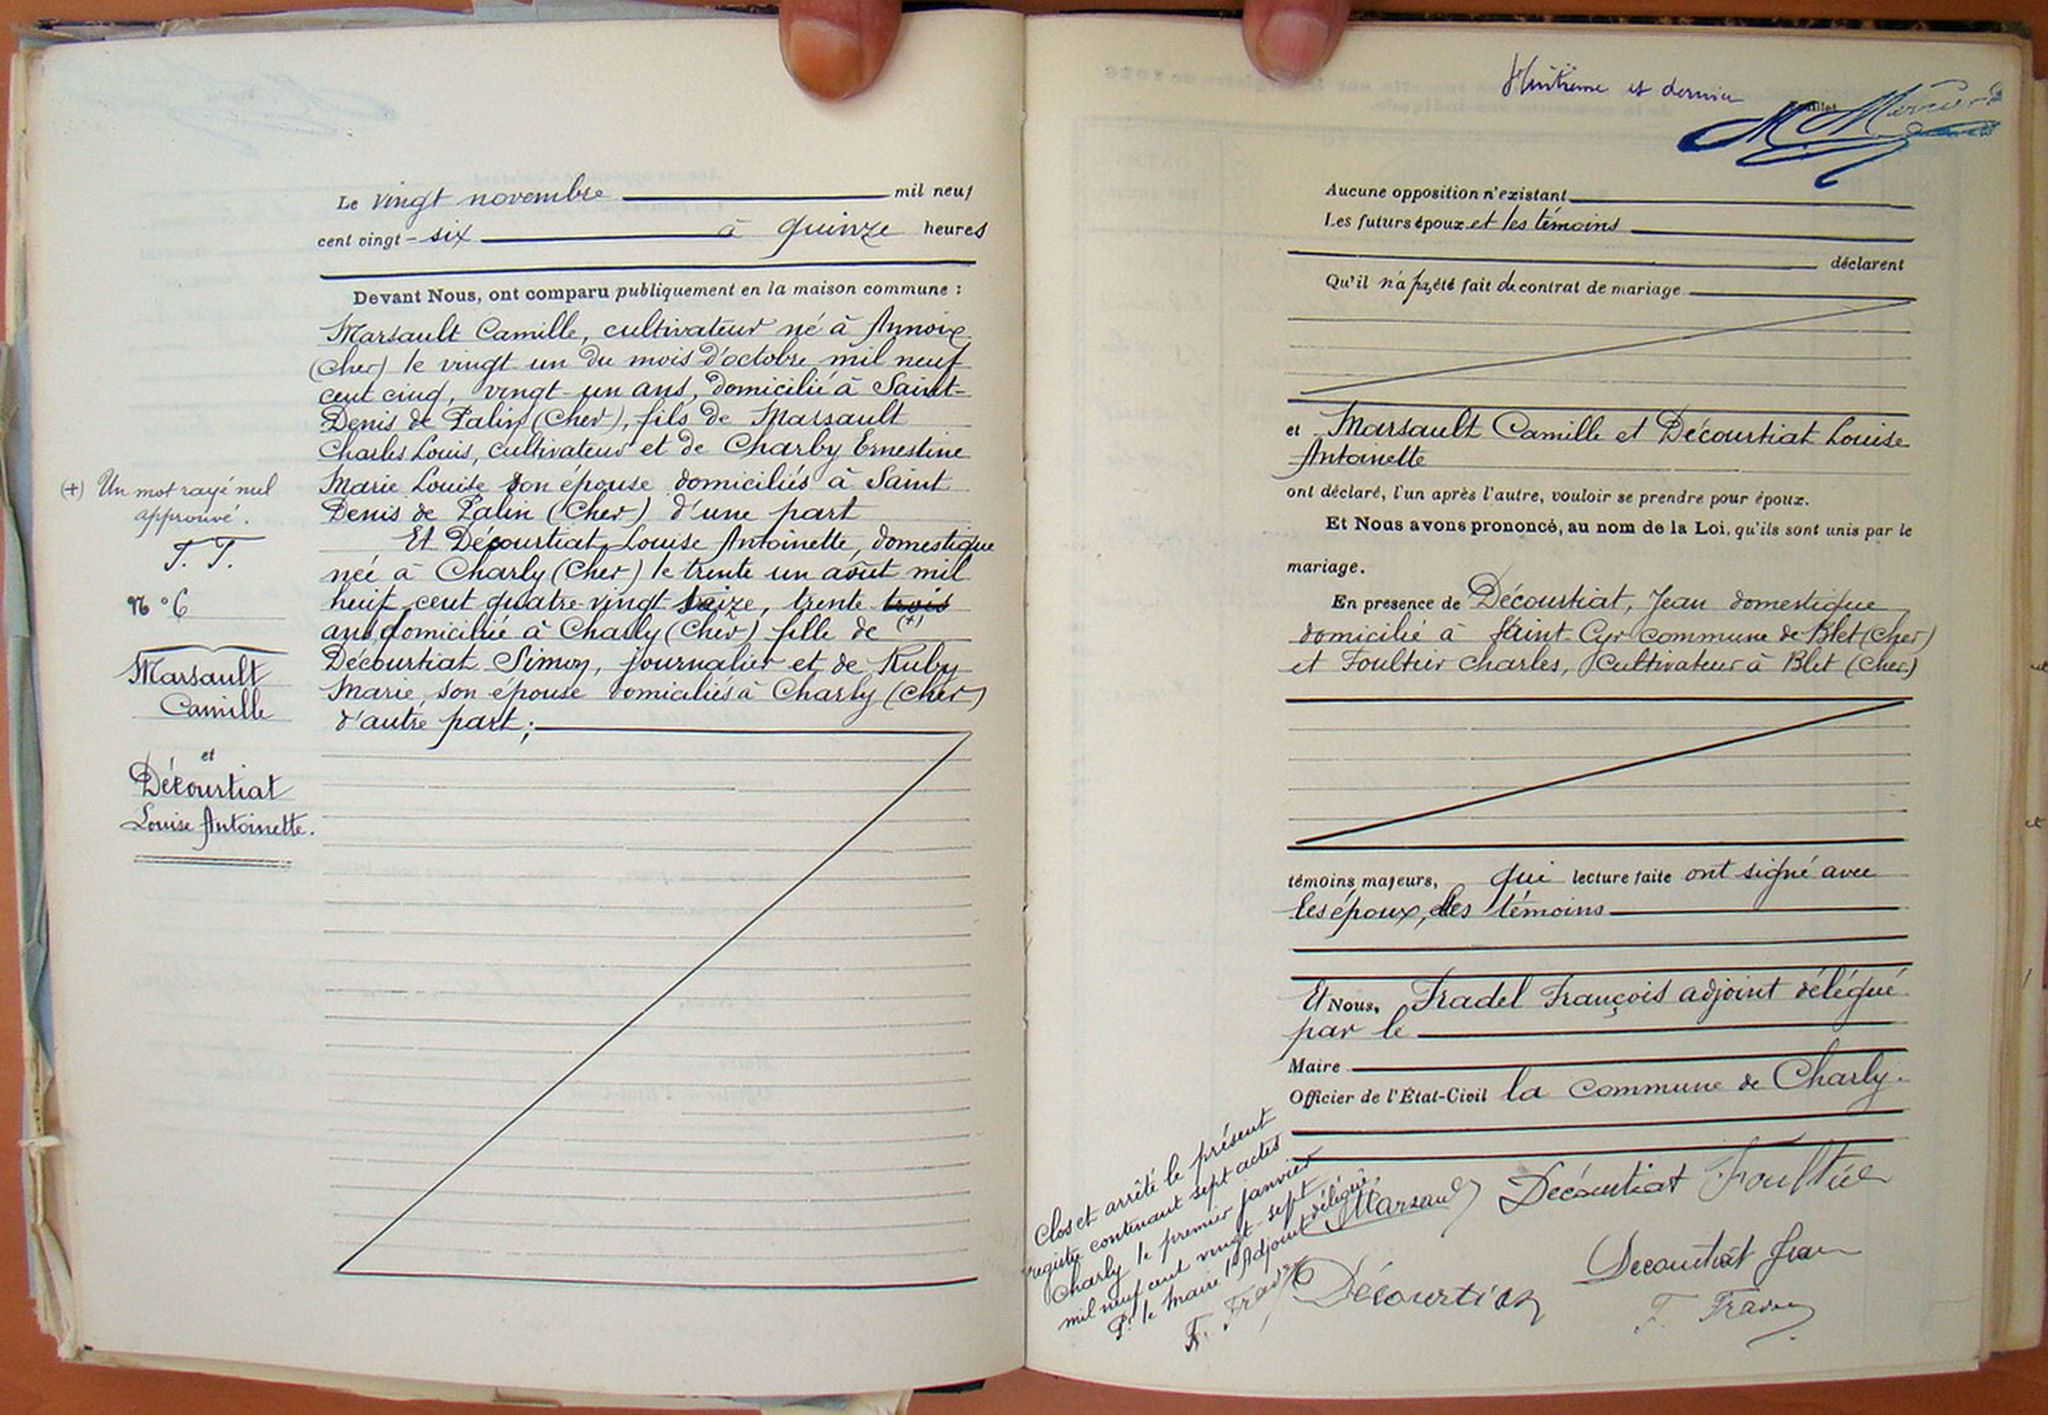 Le vingt novembre mil neuf
cent vingt-six à quinze heures
Devant Nous, ont comparu publiquement en la maison commune :
Marsault Camille, cultivateur né à Annoix
(Cher) le vingt un du mois d'octobre mil neuf
cent cinq, vingt-un ans, domicilié à Saint-
Denis de Palin (Cher), fils de Marsault
Charles Louis, cultivateur et de Charby Ernestine
Marie Louise son épouse domiciliés à Saint
Denis de Palin (Cher) d'une part
Et Décourtiat Louise Antoinette, domestique
née à Charly (Cher) le trente un août mil
huit cent quatre-vingt seize, trente trois
ans domiciliée à Charly (Cher) fille de (+)
Décourtiat Simon, journalier et de Ruby
Marie son épouse domiciliés à Charly (Cher)
d'autre part ;
(+) Un mot rayé nul
approuvé.
F. F.
N° 6
Marsault
Camille
et
Décourtiat
Louise Antoinette.
Huitième et dernier
feuillet
Aucune opposition n'existant
Les futurs époux et les témoins
déclarent
Qu'il n'a pas été fait de contrat de mariage
et Marsault Camille et Décourtiat Louise
Antoinette
ont déclaré, l'un après l'autre, vouloir se prendre pour époux.
Et Nous avons prononcé, au nom de la Loi, qu'ils sont unis par le
mariage.
En presence de Décourtiat, Jean domestique
domicilié à Saint Cyr commune de Blet (Cher)
et Foultier Charles, Cultivateur à Blet (Cher)
témoins majeurs, qui lecture faite ont signé avec
les époux, les témoins
Et Nous, Fradel François adjoint délégué
par le
Maire
Officier de l'État-Civil la commune de Charly.
Clos et arrêté le présent
registre contenant sept actes
Charly le premier janvier
mil neuf cent vingt-sept
Pr le Maire l'Adjoint délégué,
F. Fradel
Marsault Décourtiat Foultier
Décourtiat
Decourtiat Jean
F. Fradel